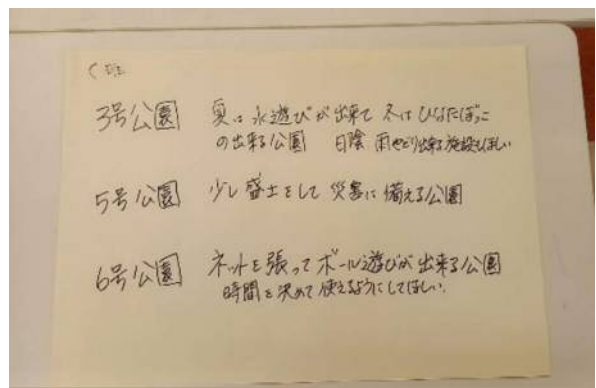 く班
3号公園 夏は水遊びが出来て 冬はひなたぼっこ
の出来る公園 日陰 雨やどり出来る施設もほしい
5号公園 少し盛土をして 災害に備える公園
6号公園 ネットを張ってボール遊びが出来る公園
時間を決めて使えるようにしてほしい。